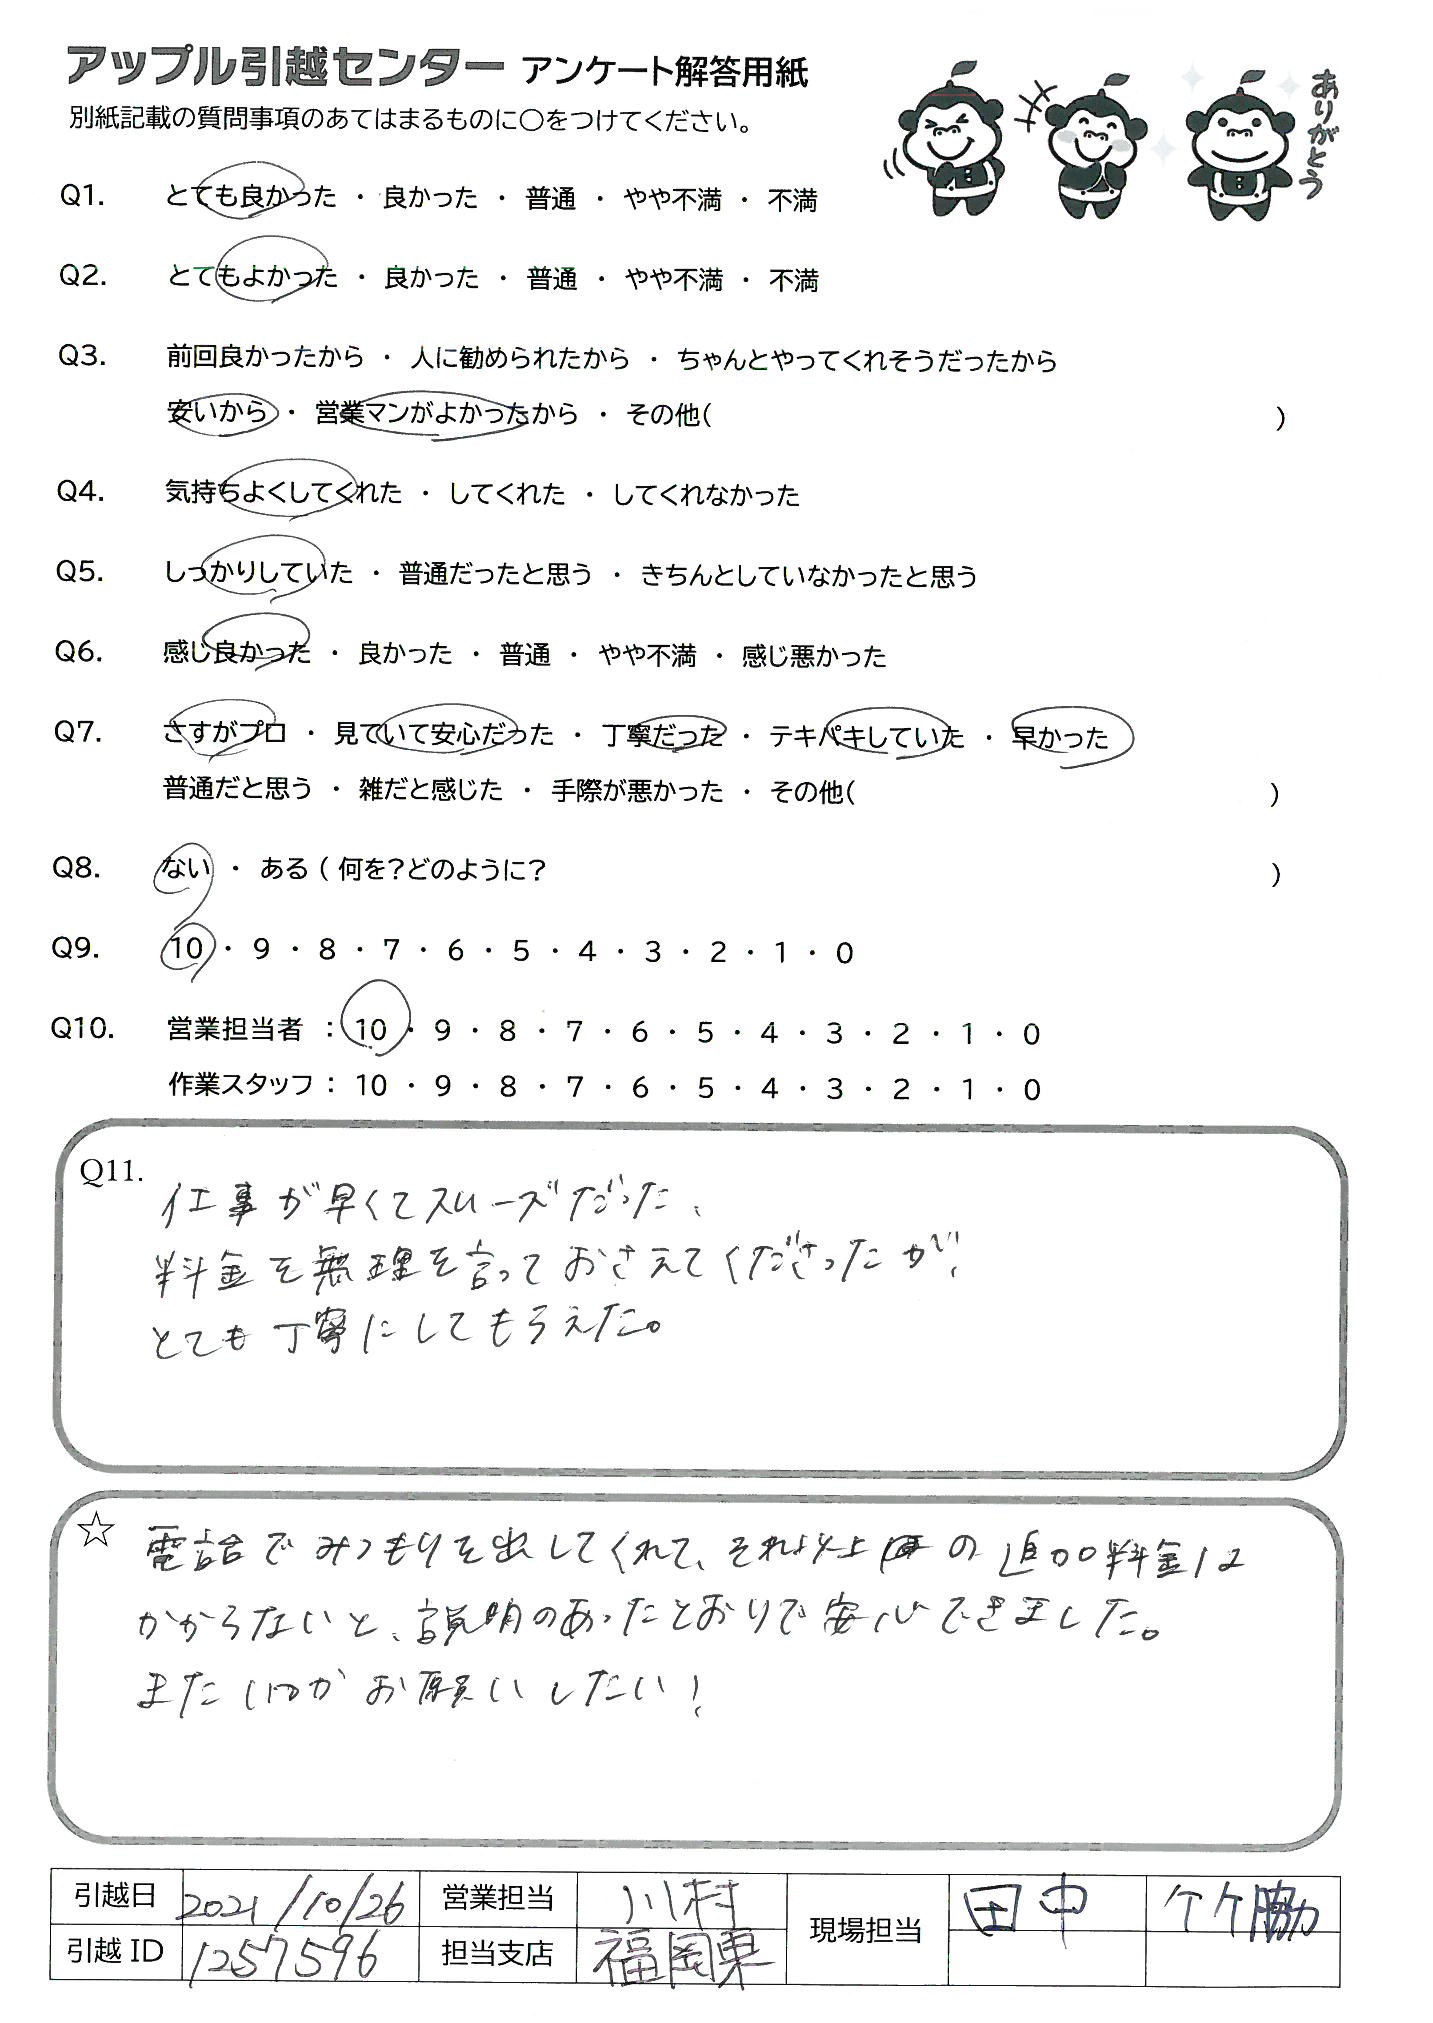 アップル引越センター アンケート解答用紙
別紙記載の質問事項のあてはまるものに〇をつけてください。
ありがとう
Q1. とても良かった ・ 良かった ・ 普通 ・ やや不満 ・ 不満
Q2. とてもよかった ・ 良かった ・ 普通 ・ やや不満 ・ 不満
Q3. 前回良かったから ・ 人に勧められたから ・ ちゃんとやってくれそうだったから
安いから ・ 営業マンがよかったから ・ その他( )
Q4. 気持ちよくしてくれた ・ してくれた ・ してくれなかった
Q5. しっかりしていた ・ 普通だったと思う ・ きちんとしていなかったと思う
Q6. 感じ良かった ・ 良かった ・ 普通 ・ やや不満 ・ 感じ悪かった
Q7. さすがプロ ・ 見ていて安心だった ・ 丁寧だった ・ テキパキしていた ・ 早かった
普通だと思う ・ 雑だと感じた ・ 手際が悪かった ・ その他( )
Q8. ない ・ ある ( 何を?どのように? )
Q9. 10 ・ 9 ・ 8 ・ 7 ・ 6 ・ 5 ・ 4 ・ 3 ・ 2 ・ 1 ・ 0
Q10. 営業担当者 : 10 ・ 9 ・ 8 ・ 7 ・ 6 ・ 5 ・ 4 ・ 3 ・ 2 ・ 1 ・ 0
作業スタッフ : 10 ・ 9 ・ 8 ・ 7 ・ 6 ・ 5 ・ 4 ・ 3 ・ 2 ・ 1 ・ 0
Q11.
仕事が早くてスムーズだった、
料金を無理を言っておさえてくださったが、
とても丁寧にしてもらえた。
☆ 電話でみつもりを出してくれて、それ以上の追加料金は
かからないと、説明のあったとおりで安心できました。
またいつかお願いしたい!
引越日 2021/10/26 営業担当 川村 現場担当 田中
引越 ID 1257596 担当支店 福岡東